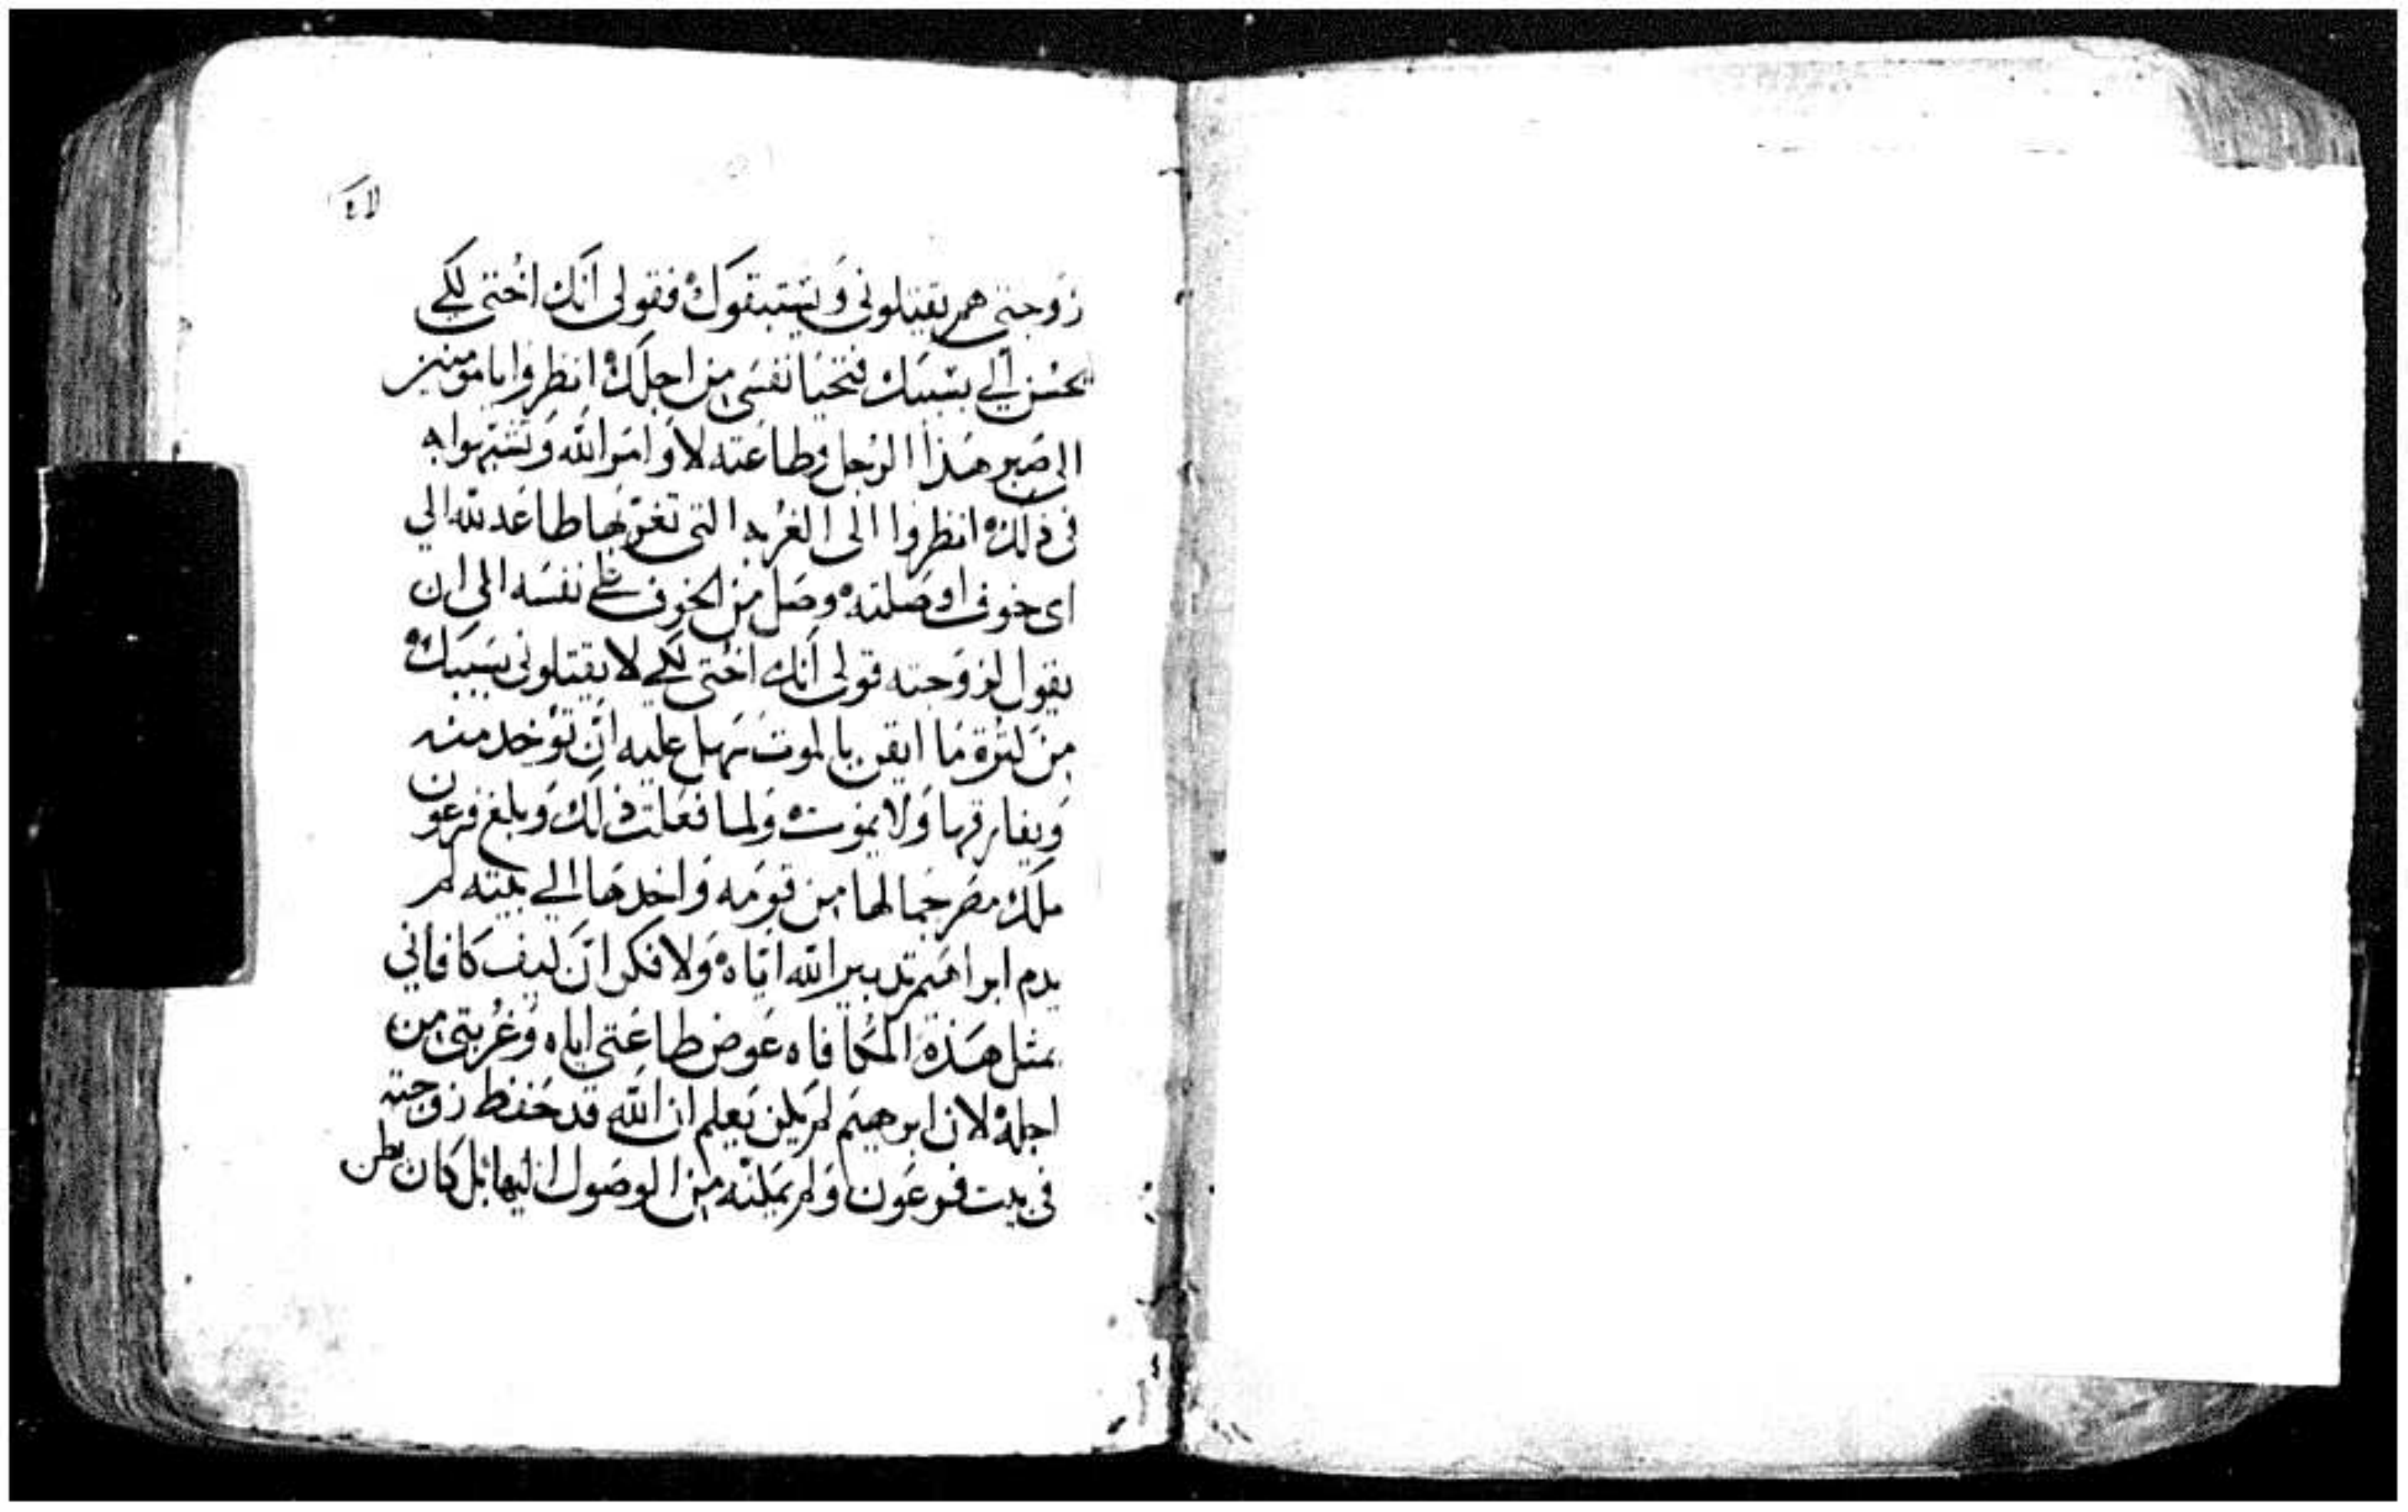 زوجتى هم يقتلونى وَيستبقوك فقولى أنك اختى لكى
يحسُن الي بسببك فتحيا نفسى من اجلك انظروا يا مومنين
الى صبر هذا الرجل وطاعته لاوامر الله وتشبهوا به
فى ذلك انظروا الى الغربه التى تغربها طاعه لله الي
اى خوف اوصلته وصل من الخوف على نفسه الى ان
يقول لزوجته قولى أنك اختى لكى لا يقتلونى بسببك
من كثرة ما ايقن بالموت سهل عليه ان توخد منه
ويفارقها ولا يموت ولما فعلت ذلك وبلغ فرعون
ملك مصر جمالها من قومه واخدها الي بيته لم
يدم ابراهيم تدبير الله اياه ولا فكر ان كيف كافانى
بمثل هذه المكافاه عوض طاعتى اياه وغربتى من
اجله لان ابرهيم لم يكن يعلم ان الله قد حفظ زوجته
فى بيت فرعون ولم يمكنه من الوصول اليها بل كان يظن